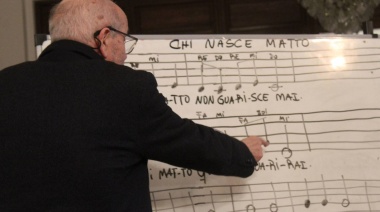 CHI NASCE MATTO
MI RE DO RE MI DO
TTO NON GUA-RI-SCE MAI.
FA MI FA SOL MI
MAT-TO RI-RAI.